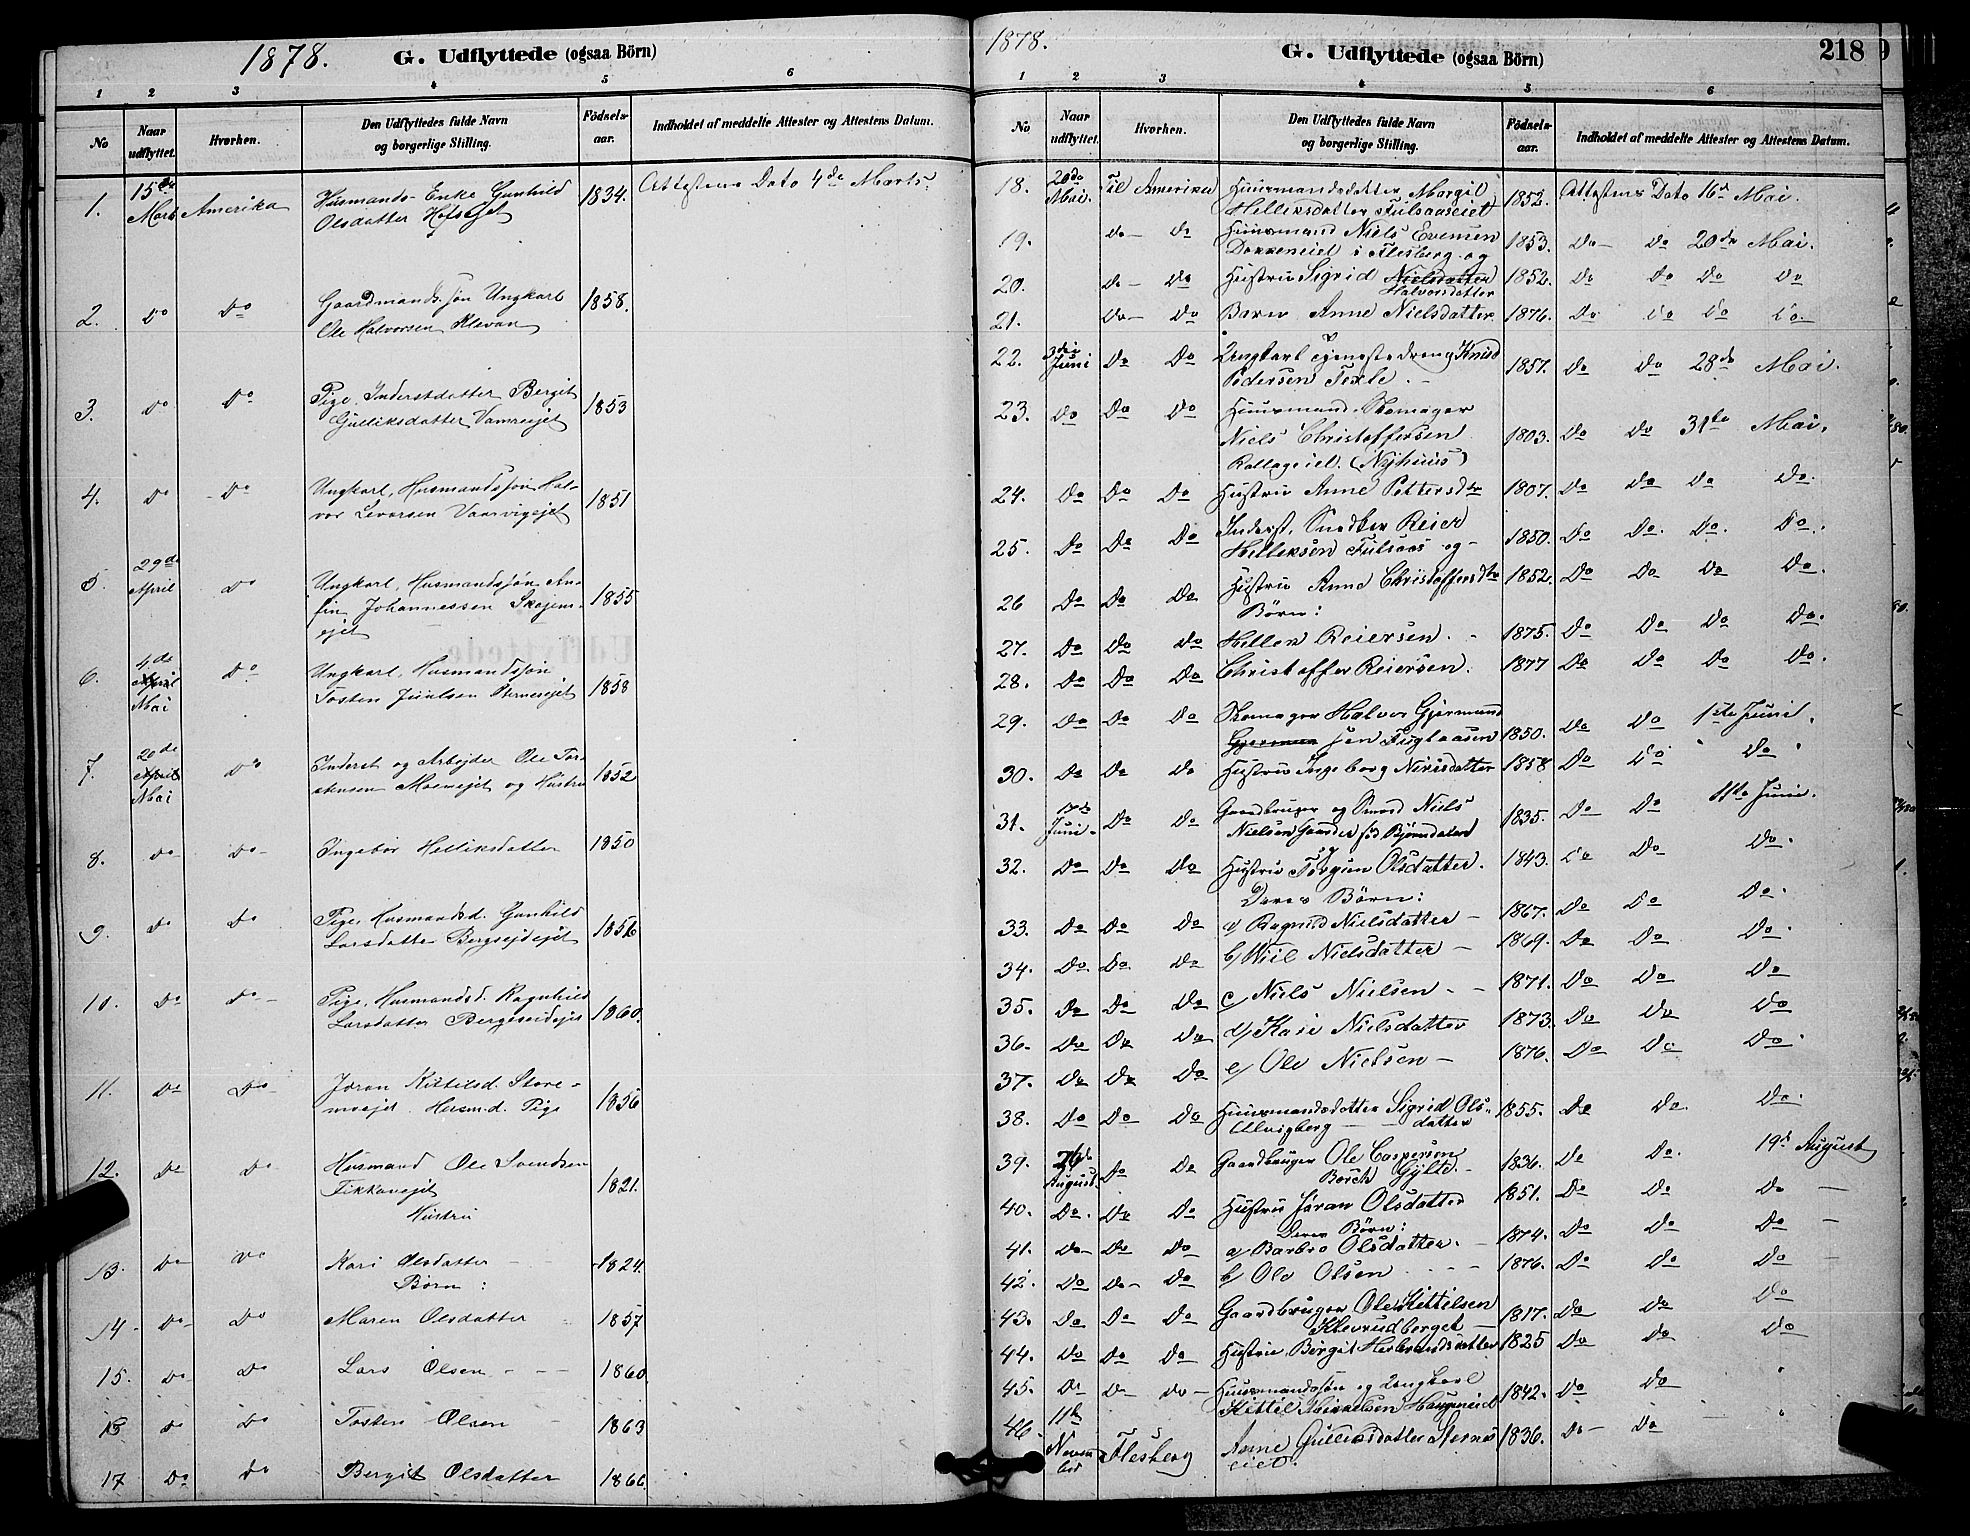 1878.
G. Udflyttede (ogsaa Börn)
1 2 3 4 5 6
No
Naar udflyttet.
Hvorhen.
Den Udflyttedes fulde Navn og borgerlige Stilling.
Födsels-aar.
Indholdet af meddelte Attester og Attestens Datum.
1. 15de Marts Amerika Husmands-Enke Gunhild 1834. Attestens Dato 4de Marts.
Olsdatter Hofsejet
2. Do Do Gaardmandssøn Ungkarl 1858.
Ole Halvorsen Klevan
3. Do Do Pige, Inderstdatter Bergit 1853
Gulliksdatter
4. Do Do Ungkarl, Husmandssøn Hal- 1851
vor Levorsen Vaarvigejet
5. 29de April Do Ungkarl, Husmandssøn An- 1855
fin Johannessen Skojem-
ejet
6. 4de April Mai Do Ungkarl, Husmandssøn 1858
Tosten Juulsen
7. 20de April Mai Do Inderst og Arbejder Ole Tor- 1852
stensen Moenejet og Hustru
8. Do Do Ingebor Helliksdatter 1850
9. Do Do Pige, Husmandsd. Gunhild 1856
Larsdatter Bergsejdejet
10. Do Do Pige, Husmandsd. Ragnhild 1860.
Larsdatter Bergeseidejet
11. Do Do Jøran Kittilsd. Store- 1856
moejet. Husm.d. Pige
12. Do Do Husmand Ole Svendsen 1821.
Fikkanejet
Hustru
13. Do Do Kari Olsdatter 1824.
Børn:
14 Do Do Maren Olsdatter 1857
15. Do Do Lars Olsen 1860.
Do Do Tosten Olsen 1863
17 Do Do Bergit Olsdatter 1866.
1878.
G. Udflyttede (ogsaa Börn)
218
1 2 3 4 5 6
No
Naar udflyttet.
Hvorhen.
Den Udflyttedes fulde Navn og borgerlige Stilling.
Födsels-aar.
Indholdet af meddelte Attester og Attestens Datum.
18. 20de Mai. Til Amerika Huusmandsdatter Margit 1852. Attestens Dato 16de Mai.
Helliksdatter Fulsaaseiet
19. do Do Huusmand Niels Evensen 1853. Do Do 20de Mai.
Dokkeneiet i Flesberg og
20. do Do Hustru Sigrid Nielsdatter 1852. Do Do Do Do
Halvorsdatter
21. do Do Barn Anne Nielsdatter 1876. Do Do Do Do
22. 3die Juni Do Do Ungkarl Tjenestedreng Knud 1857. Do Do 28de Mai.
Pedersen Texle.
23. Do Do Do Huusmand Skomager
Niels Christoffersen 1803. Do Do 31te Mai.
Rollageiet. (Nyhuus)
24. Do Do Do Hustru Anne Pettersdtr 1807. Do Do Do Do.
25. Do Do Do Inderst, Snedker Reier 1850. Do Do. Do. Do.
Helliksen Fulsaas og
26 Do Do Do Hustru Anne Christoffersdtr 1852. Do Do Do Do.
Børn:
27. Do Do Do Hellek Reiersen. 1875. Do Do Do Do.
28. Do Do Do Christoffer Reiersen. 1877 Do Do Do Do.
29. Do Do Do Skomager Halvor Gjermund 1850. Do Do 1ste Juni.
sen Fuglaasen
30. Do Do Do Hustru Ingeborg Nirisdatter 1858 Do Do Do
31. 17de Juni Do Do Gaardbruger og Smed Niels 1835. Do Do 11te Juni.
Nielsen Gaarder fød Bjørndalen
32. Do Do Do Hustru Torgun Olsdatter. 1843. Do Do Do.
Deres Børn:
33. Do Do Do a/ Ragnild Nielsdatter 1867. Do Do Do.
34. Do Do. Do b/ Wiil Nielsdatter 1869. Do Do Do.
35. Do Do Do c/ Niels Nielsen 1871. Do Do Do
36. Do Do Do d/ Kari Nielsdatter 1873. Do Do Do
37. Do Do Do e/ Ole Nielsen 1876. Do Do Do.
38. Do Do Do Huusmandsdatter Sigrid Ols- 1855. Do Do. Do.
Ulvigberg datter
39. 26de August. Do Do Gaardbruger Ole Caspersøn 1836. Do Do. 19de August
Borch Gylte.
40. Do. Do Do Hustru Jøran Olsdatter 1851. Do Do Do
Deres Børn:
41. Do Do Do a/ Barbro Olsdatter. 1874. Do Do Do
42. Do Do Do b/ Ole Olsen 1876. Do Do Do
43. Do Do Do Gaardbruger Ole Kittilsen 1817. Do Do Do
Klevrudberget
44. Do Do Do Hustru Birgit Herbrandsdatter 1825 Do Do Do
45. Do Do do Huusmandssøn og Ungkarl 1842. Do Do "
Kittil Haugeneiet
46. 11te November Flesberg Anne Gulliksdatter 1836. Do Do "
eiet.